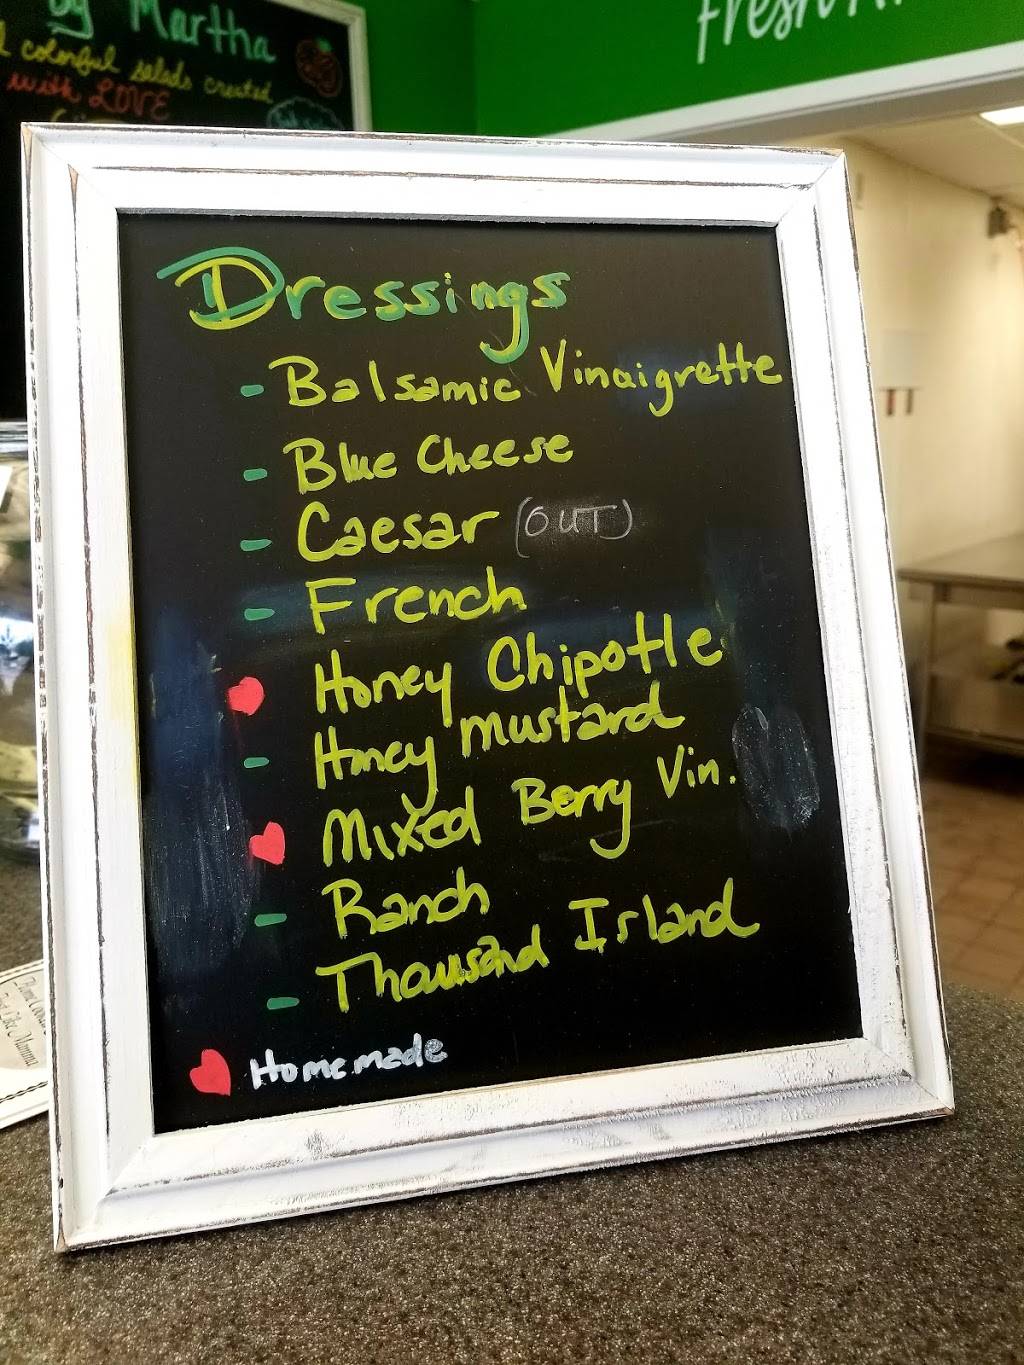 by Martha
colorful salads created
with LOVE
fresh
Dressings
- Balsamic Vinaigrette
- Blue Cheese
- Caesar (OUT)
- French
Honey Chipotle
- Honey mustard
Mixed Berry Vin.
- Ranch
- Thousand Island
Homemade